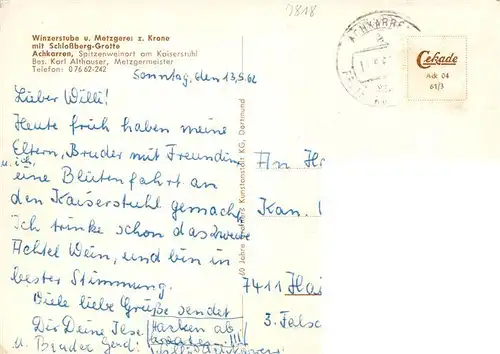 7818
Winzerstube u. Metzgerei z. Krone
mit Schloßberg-Grotte
Achkarren, Spitzenweinort am Kaiserstuhl
Bes. Karl Althauser, Metzgermeister
Telefon: 0 76 62-242
ACHKARRE
Cekade
Ack 04
61/3
Sonntag, den 13.5.62
Lieber Willi!
Heute früh haben meine
Eltern, Bruder mit Freundin
u. ich,
eine Blütenfahrt an
den Kaiserstuhl gemacht,
Ich trinke schon das zweite
Achtel Wein, und bin in
bester Stimmung.
Viele liebe Grüße sendet
Dir Deine Ilse
u. Bruder Gerd.
Karten ab
60 Jahre Kunstanstalt KG, Dortmund
An H
Kan.
7411 Hai
3. Falsc